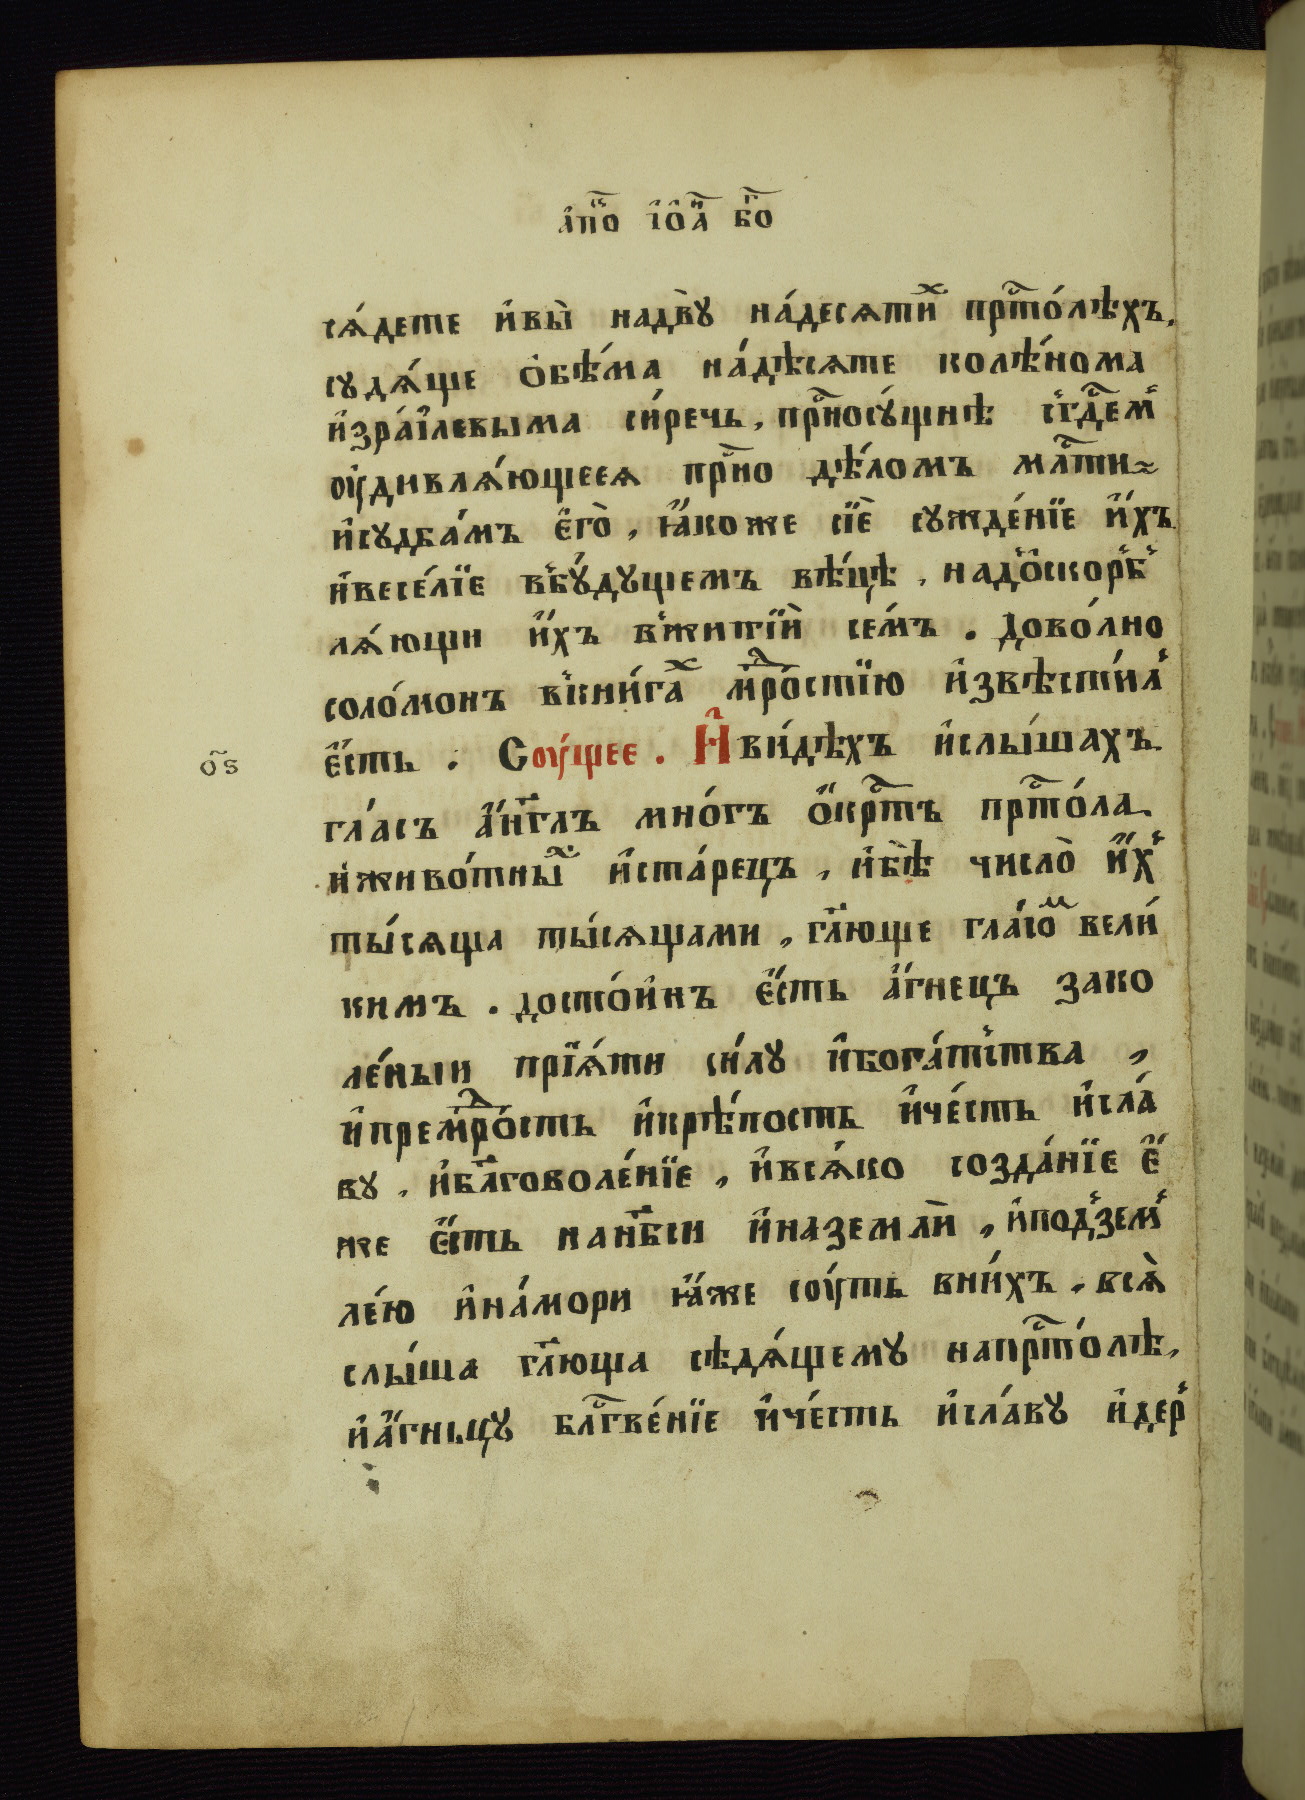 а҆пⷭ҇о і҆ѻ҆а҃ⷩ бⷢ҇о
сѧ́дете и҆вы̀ надвꙋ̀ на́десѧтиⷯ прⷭ҇то́лѣхъ,
сꙋдѧ́ще ѻ҆бѣ́ма на́дѣсѧте колѣ́нома
и҆зра́илевыма си́речь, прⷭ҇носꙋ́щнѣ сꙋдѧ́ем꙽
оу҆дивлѧ́ющеесѧ прⷭ҇но дѣ́ломъ млⷭ҇ти
и҆сꙋдба́мъ є҆го̀, ꙗ҆́коже сїѐ сꙋжде́нїе и҆́хъ
и҆весе́лїе въбꙋ́дꙋщемъ вѣ́цѣ, над꙾ѻскор꙽б꙽
лѧ́ющи и҆́хъ в꙽житїѝ се́мъ. дово́лно
соло́монъ в꙽кни́гаⷯ мрⷣостїю и҆звѣсти́л꙽
є҆́сть. Соу́щее. И҆ви́дѣхъ и҆слы́шахъ
о҃ѕ
гла́съ а҆́нг҃лъ мно́гъ ѻ҆́крⷭ҇тъ прⷭ҇то́ла
и҆живо́тныⷯ и҆ста́рецъ, и҆бѣ̀ число̀ и҆́х꙽
ты́сѧща ты́сѧщами, гл҃юще гла́соⷨ вели́
кимъ. досто́инъ є҆́сть а҆́гнецъ зако
ле́ныи прїѧ́ти си́лꙋ и҆бога́тства,
и҆премрⷣость и҆крѣ́пость и҆че́сть и҆сла́
вꙋ, и҆бл҃говоле́нїе, и҆всѧ́ко созда́нїе є҆́
же є҆́сть нанб҃си и҆наземлѝ, и҆под꙽зем꙽
ле́ю и҆на́мори ꙗ҆́же соу́ть вни́хъ, всѧ̀
слы́ша гл҃юща сѣдѧ́щемꙋ напрⷭ҇то́лѣ,
и҆а҆́гньцꙋ блⷭ҇гве́нїе и҆че́сть и҆сла́вꙋ и҆дер꙽